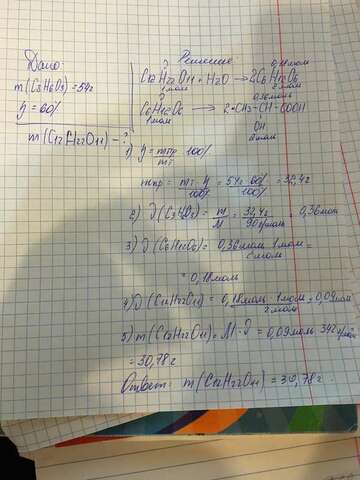 Дано:
Решение
m(C3H6O3)=54г
η = 60%
m(C12H22O11)-?
? 0,18моль
C12H22O11 + H2O → 2C6H12O6
1моль 2моль
? 0,36моль
C6H12O6 → 2·CH3-CH-COOH
1моль OH
2моль
1) η = mпр/mт · 100%
mпр = mт·η/100% = 54г·60%/100% = 32,4г
2) ν(C3H6O3) = m/M = 32,4г/90г/моль = 0,36моль
3) ν(C6H12O6) = 0,36моль·1моль/2моль =
= 0,18моль
4) ν(C12H22O11) = 0,18моль·1моль/2моль = 0,09моль
5) m(C12H22O11) = M·ν = 0,09моль·342г/моль
= 30,78г
Ответ: m(C12H22O11) = 30,78г.